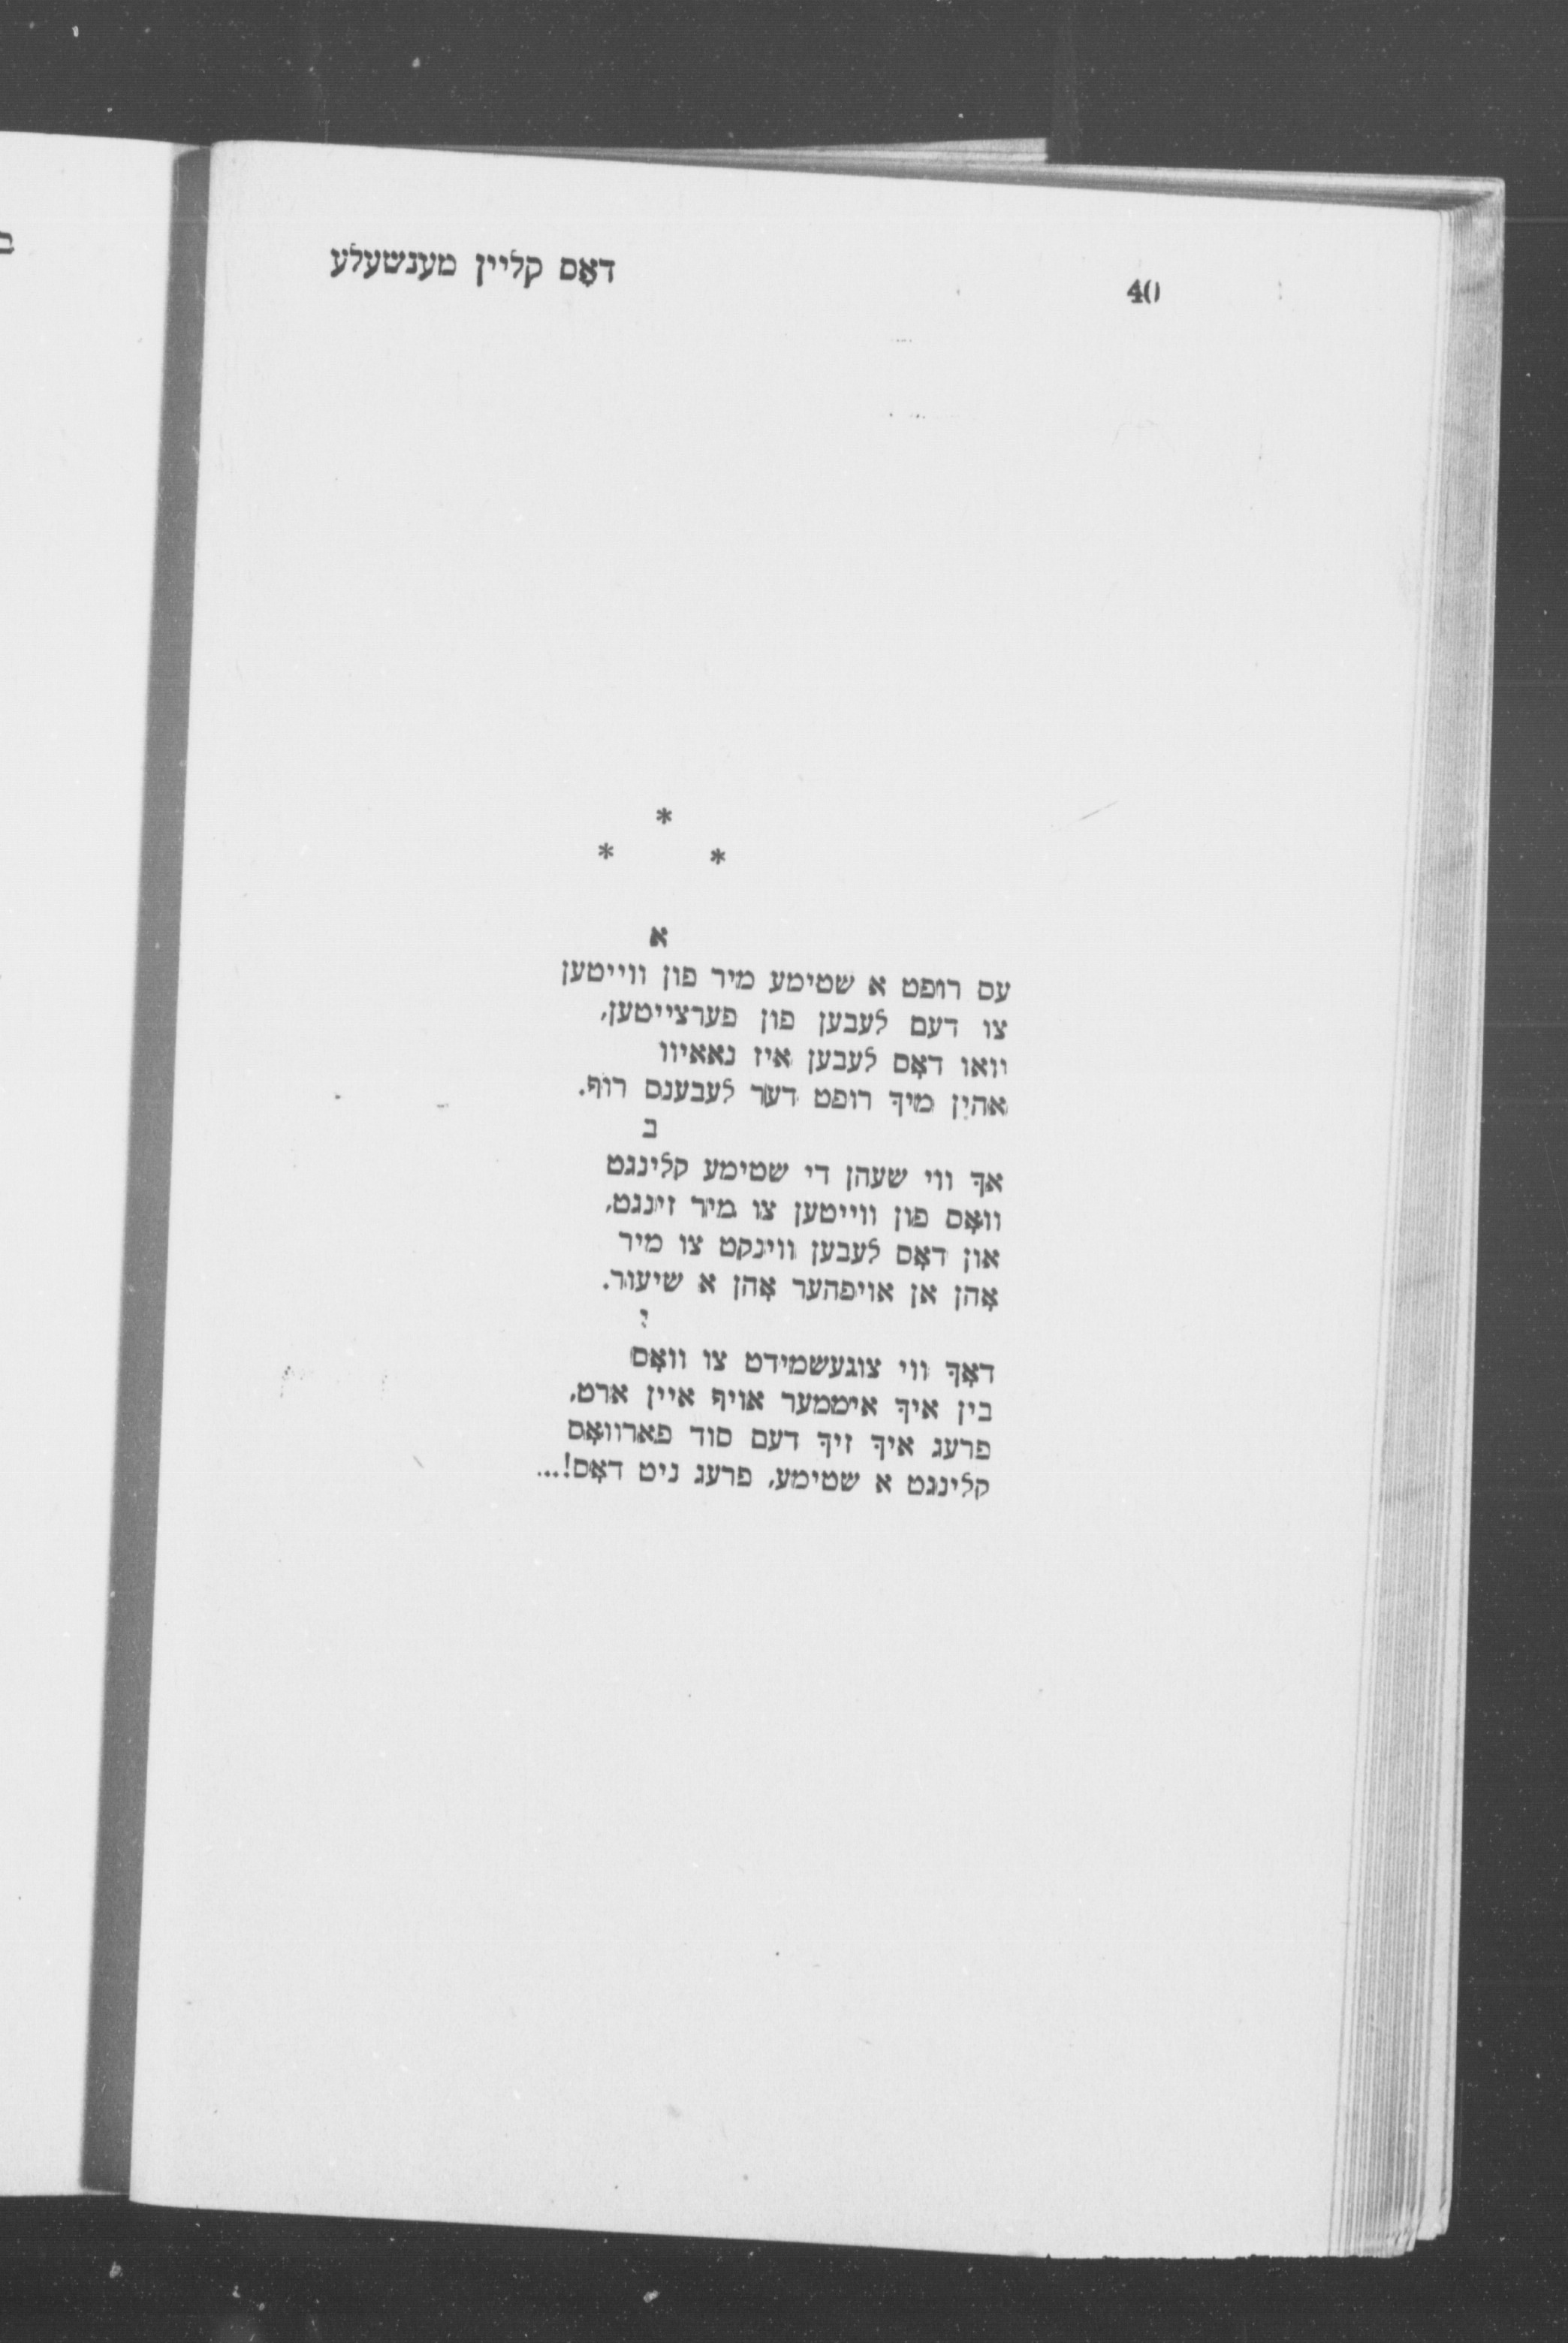 40 דאָס קליין מענשעלע
*
* *
א
עס רופט א שטימע מיר פון ווייטען
צו דעם לעבען פון פערצייטען,
וואו דאָס לעבען איז נאאיוו
אהין מיך רופט דער לעבענס רוף.
ב
אך ווי שעהן די שטימע קלינגט
וואָס פון ווייטען צו מיר זינגט,
און דאָס לעבען ווינקט צו מיר
אָהן אן אויפהער אָהן א שיעור.
דאָך ווי צוגעשמידט צו וואָס
בין איך איממער אויף איין ארט,
פרעג איך זיך דעם סוד פארוואָס
קלינגט א שטימע, פרעג ניט דאָס!...